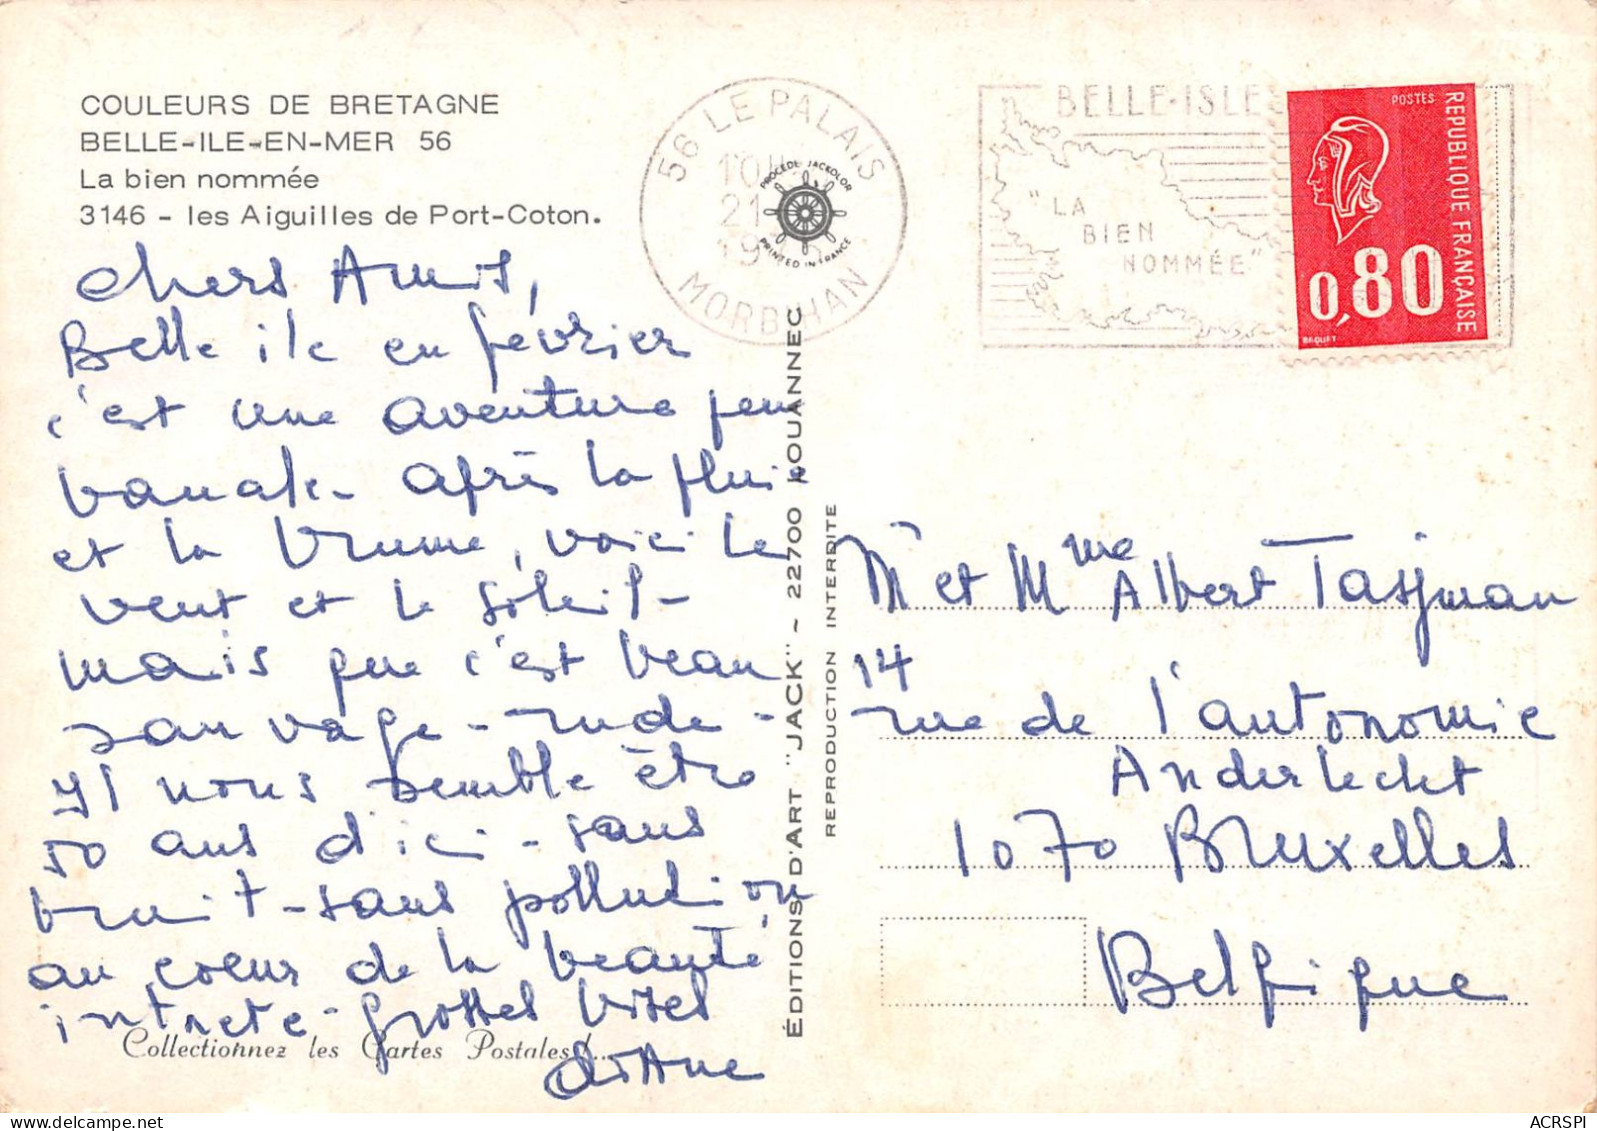 COULEURS DE BRETAGNE
BELLE-ILE-EN-MER 56
La bien nommée
3146 - les Aiguilles de Port-Coton.
Chers Amis,
Belle ile en février
c'est une aventure peu
banale - après la pluie
et la brume, voici le
vent et le soleil -
mais que c'est beau
sauvage - rude -
Il nous semble être
50 ans d'ici - sans
bruit - sans pollution
au coeur de la beauté
intacte - grosses bises
Collectionnez les Cartes Postales !...
56 LE PALAIS
10H
21
19
MORBIHAN
PROCÉDÉ JACKOLOR
PRINTED IN FRANCE
BELLE-ISLE
"LA
BIEN
NOMMÉE"
POSTES
REPUBLIQUE FRANÇAISE
0,80
BEQUET
ÉDITIONS D'ART "JACK" - 22700 LOUANNEC
REPRODUCTION INTERDITE
Mr et Mme Albert Tassman
14
rue de l'autonomie
Anderlecht
1070 Bruxelles
Belgique
ACRSPI